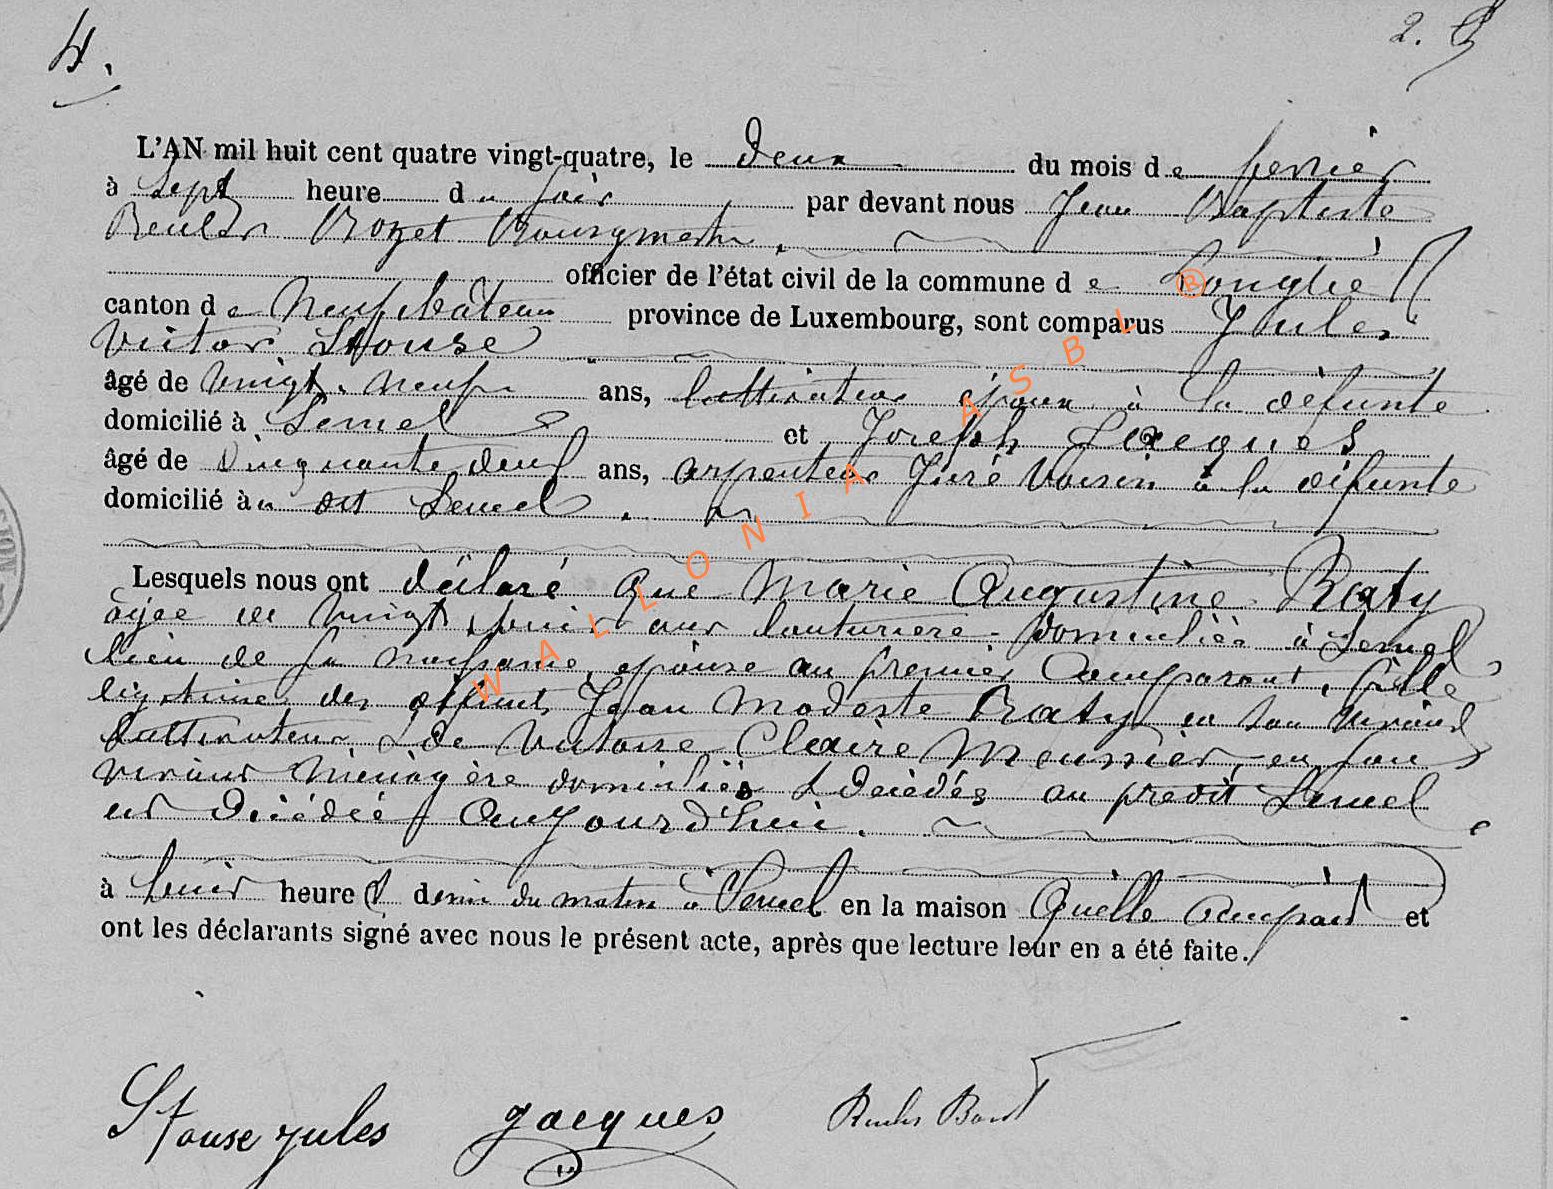 4.
2.
L'AN mil huit cent quatre vingt-quatre, le deux du mois de fevrier
à Sept heure du soir par devant nous Jean Baptiste
Reuler Rozet Bourgmestre.
officier de l'état civil de la commune de Longlié
canton de Neufchâteau province de Luxembourg, sont comparus Jules
Victor Stouse
âgé de vingt-neuf ans, cultivateur époux à la défunte
domicilié à Semel et Joseph Jacques
âgé de Cinquante deux ans, arpenteur Juré Voisin à la défunte
domicilié à u dit Semel.
Lesquels nous ont déclaré que Marie Augustine Raty
âgée de vingt huit ans couturière domiciliée à Semel
lieu de sa naissance, épouse au premier Comparant, fille
légitime des défunts Jean Modeste Raty en son vivant
Cultivateur, & de Victoire Claire Meunier, en son
vivant Ménagère domiciliés & décédés au prédit Semel
est Décédée Aujourd'hui.
à huit heure & demie du matin à Semel en la maison Quelle Occupait et
ont les déclarants signé avec nous le présent acte, après que lecture leur en a été faite.
Stouse jules
Jacques
WALLONIA ASBL ®